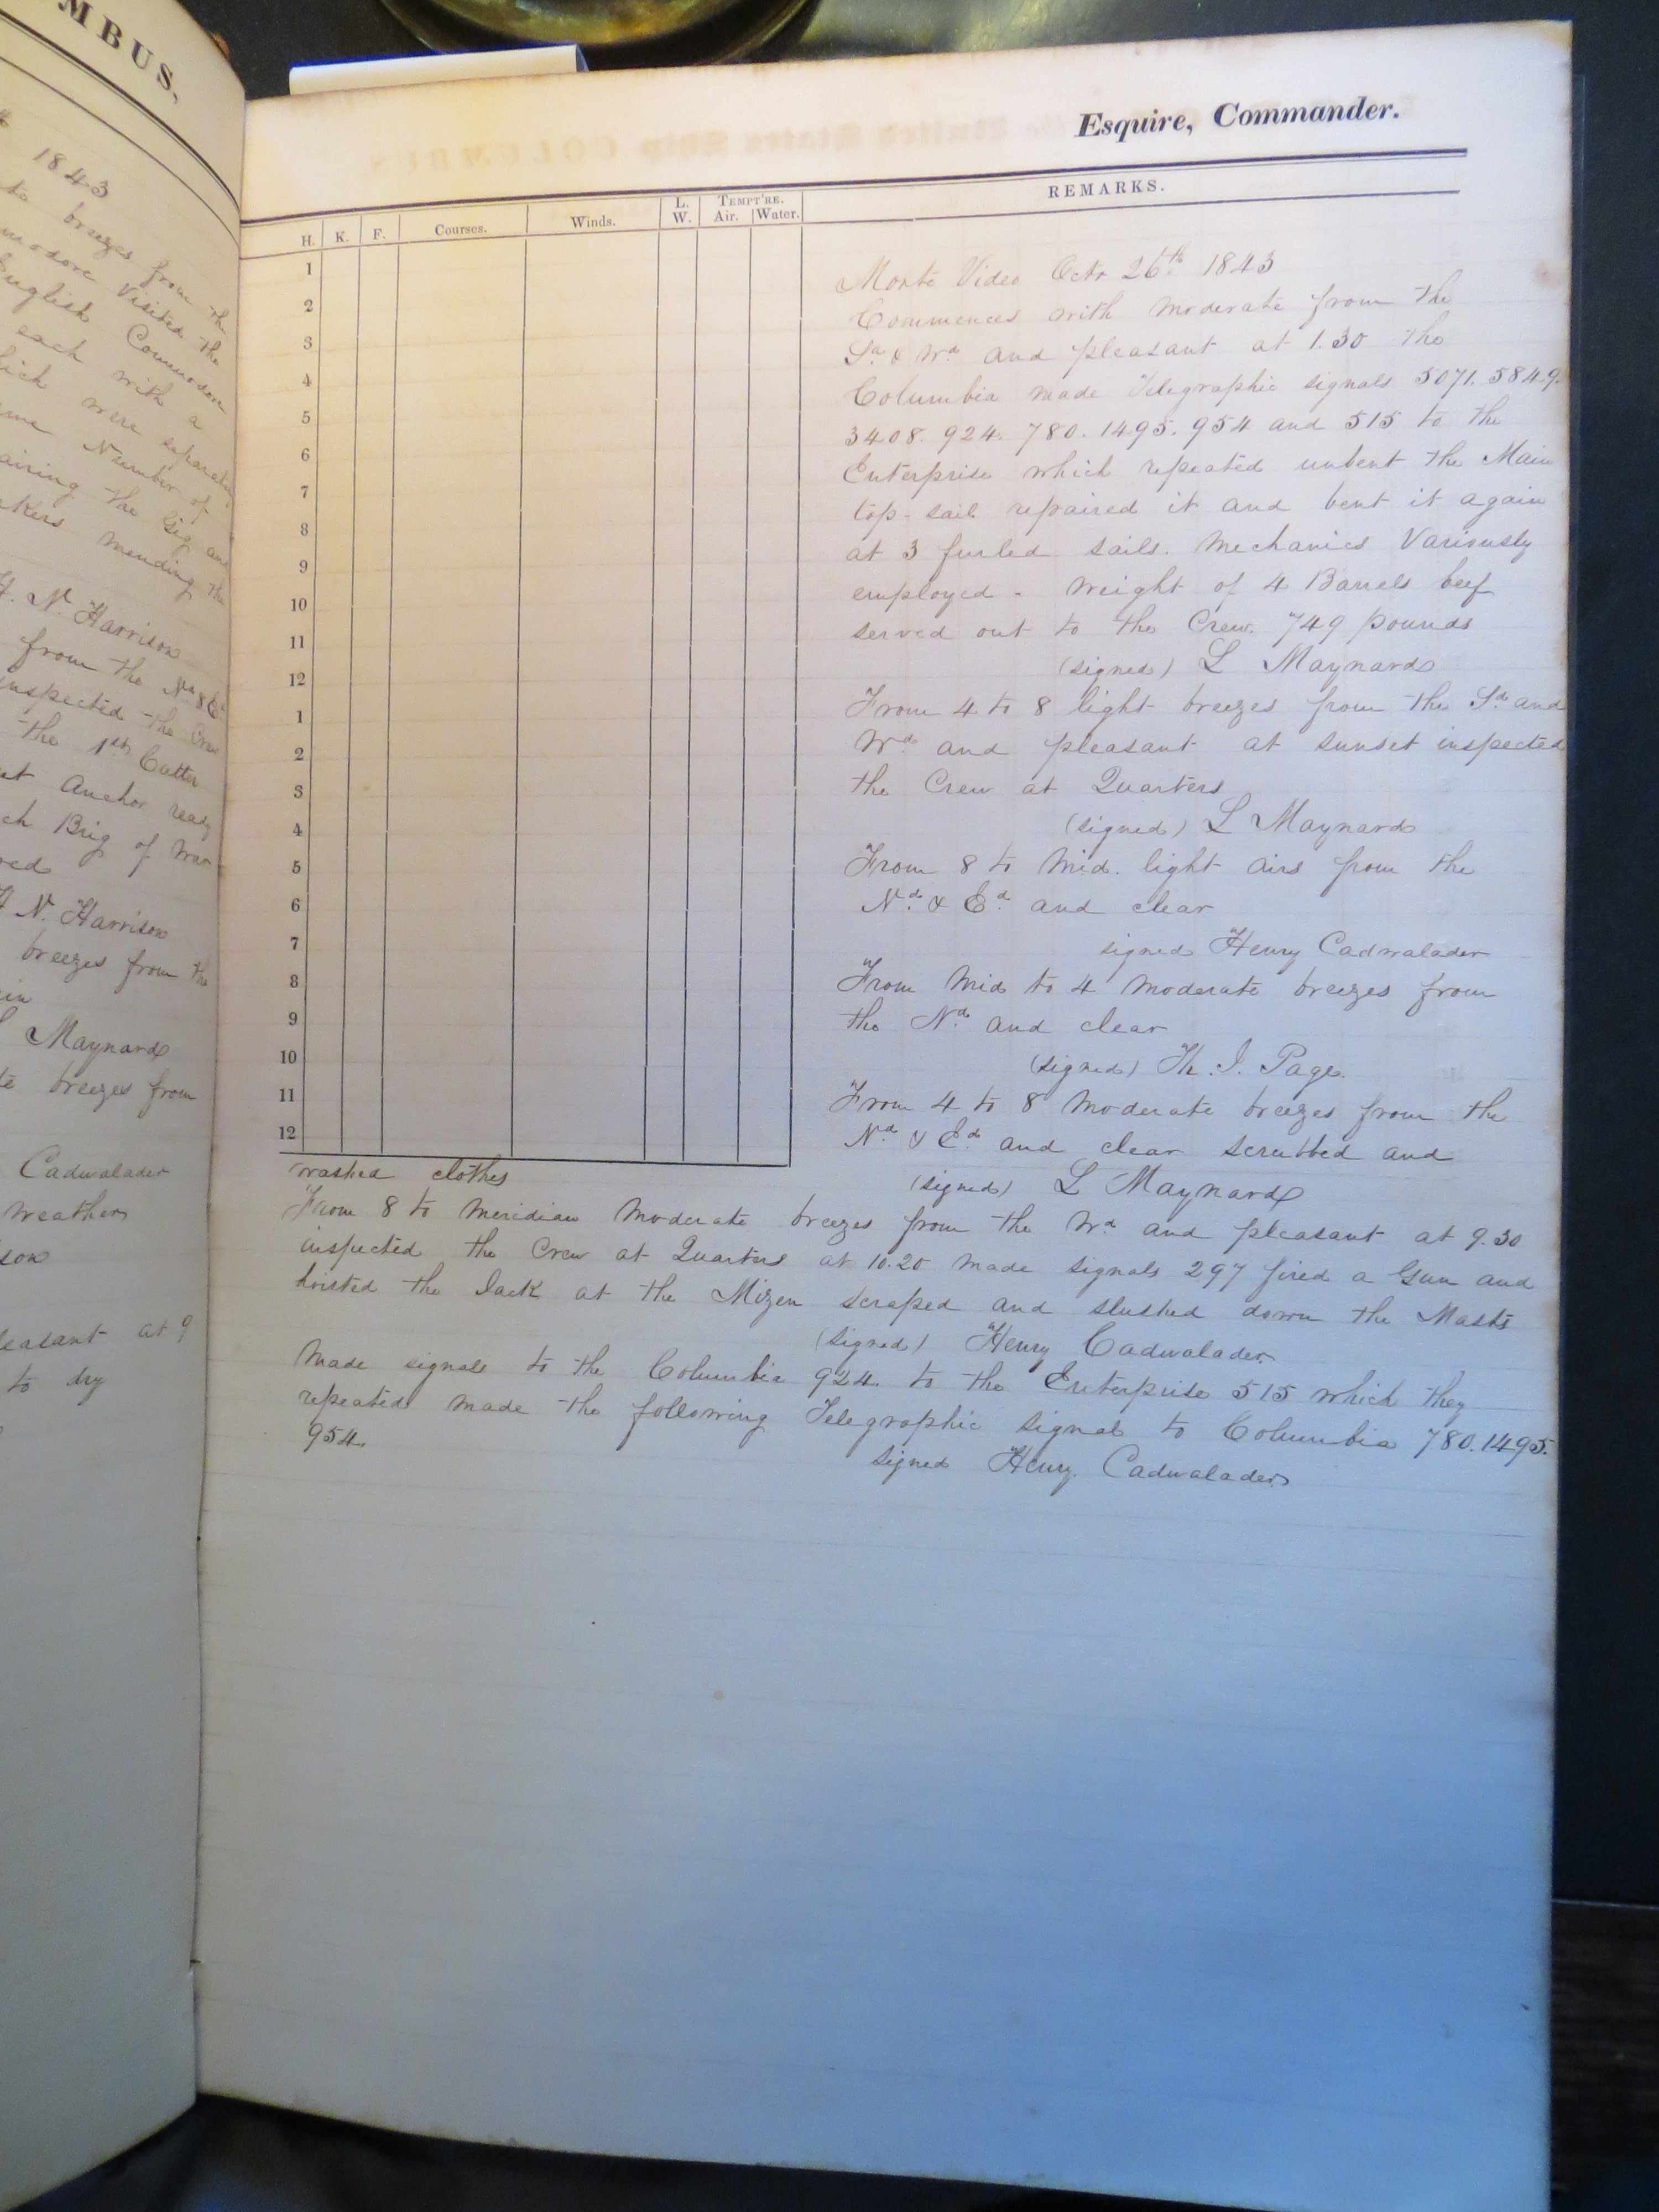 MBUS,
1843
breezes from the
modore Visited the
English Commodore
each with a
were
Number of
airing the Gig and
akers mending the
N. Harrison
from the Nd & Ed
inspected the Crew
the 1st Cutter
Anchor ready
ch Brig of War
red
N. Harrison
breezes from the
Maynard
breezes from
Cadwalader
weather
son
leasant at 9
to dry
Esquire, Commander.
H. K. F. Courses. Winds. L. W. TEMPT'RE. Air. Water. REMARKS.
1
2
3
4
5
6
7
8
9
10
11
12
1
2
3
4
5
6
7
8
9
10
11
12
Monte Video Octr 26th 1843
Commences with moderate from the
Sd & Wd and pleasant at 1.30 the
Columbia made Telegraphic signals 5071. 5849.
3408. 924. 780. 1495. 954 and 515 to the
Enterprise which repeated unbent the Main
top-sail repaired it and bent it again
at 3 furled sails. Mechanics Variously
employed - Weight of 4 Barrels beef
served out to the Crew. 749 pounds
(signed) L Maynard
From 4 to 8 light breezes from the Sd and
Wd and pleasant at sunset inspected
the Crew at Quarters
(signed) L Maynard
From 8 to Mid. light airs from the
Nd & Ed and clear
signed Henry Cadwalader
From Mid to 4 moderate breezes from
the Nd and clear
(signed) Th. J. Page.
From 4 to 8 moderate breezes from the
Nd & Ed and clear scrubbed and
washed clothes
(signed) L Maynard
From 8 to Meridian Moderate breezes from the Wd and pleasant at 9.30
inspected the Crew at Quarters at 10.20 made signals 297 fired a Gun and
hoisted the Jack at the Mizen scraped and slushed down the Masts
(signed) Henry Cadwalader
Made signals to the Columbia 924. to the Enterprise 515 which they
repeated made the following Telegraphic signal to Columbia 780.1495.
954.
signed Henry Cadwalader